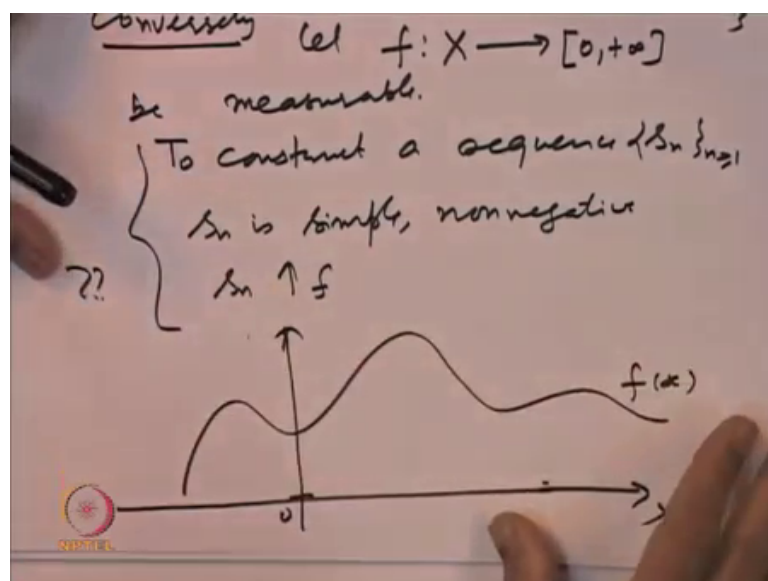 Conversely Let f : X ⟶ [0,+∞]
be measurable.
To construct a sequence {sn}n≥1
sn is simple, nonnegative
?? sn ↑ f
f(x)
0
NPTEL